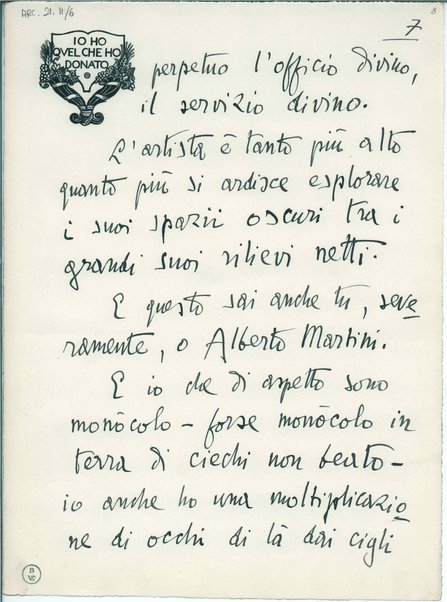 ARC. 21. II/6
3
7
IO HO
QVEL CHE HO
DONATO
perpetuo l'officio divino,
il servizio divino.
L'artista è tanto più alto
quanto più si ardisce esplorare
i suoi spazii oscuri tra i
grandi suoi rilievi netti.
E questo sai anche tu, seve
ramente, o Alberto Martini.
E io che di aspetto sono
monòcolo – forse monòcolo in
terra di ciechi non beato –
io anche ho una moltiplicazio
ne di occhi di là dai cigli